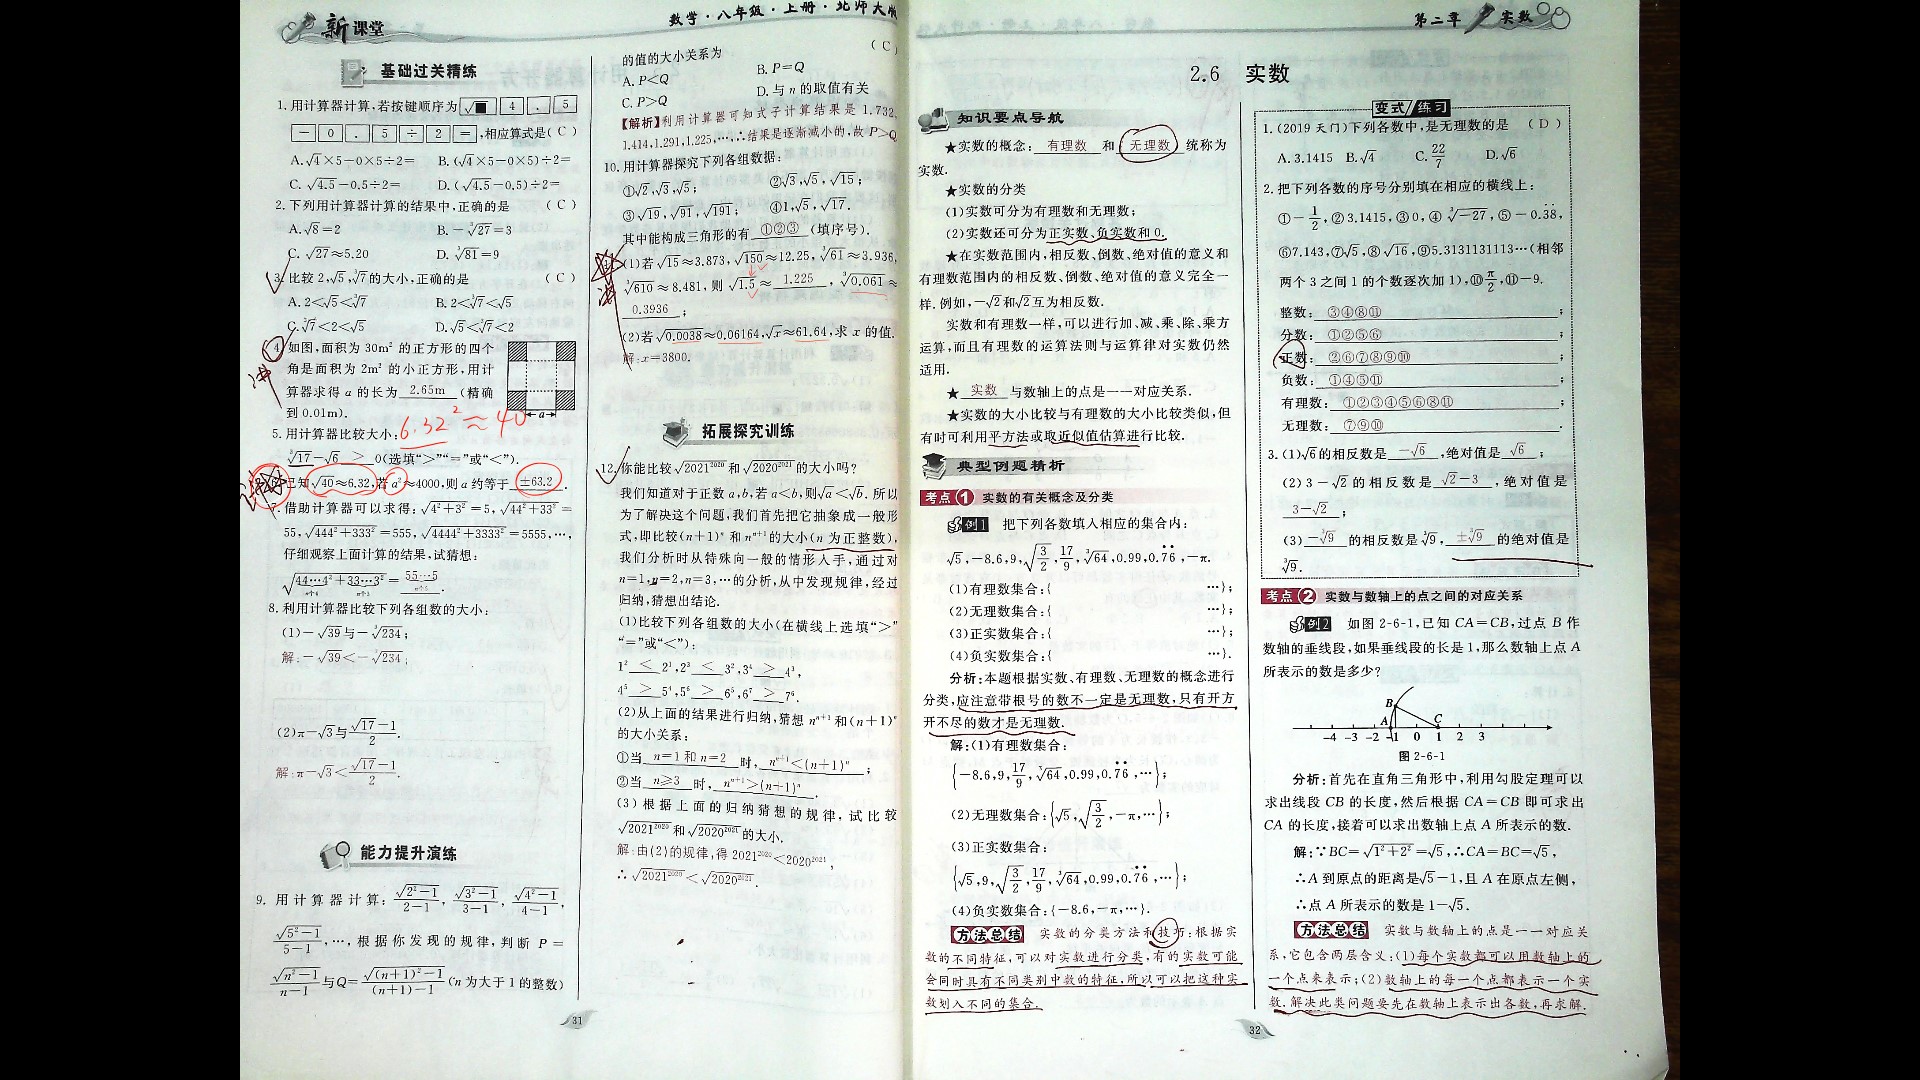 新课堂
数学·八年级·上册·北师大版
基础过关精练
1.用计算器计算,若按键顺序为 √■ 4 . 5
－ 0 . 5 ÷ 2 = ,相应算式是( C )
A.√4×5－0×5÷2＝ B.(√4×5－0×5)÷2＝
C.√4.5－0.5÷2＝ D.(√4.5－0.5)÷2＝
2.下列用计算器计算的结果中,正确的是 ( C )
A.√8＝2 B.－∛27＝3
C.√27≈5.20 D.∛81＝9
3.比较 2,√5,∛7的大小,正确的是 ( C )
A.2<√5<∛7 B.2<∛7<√5
C.∛7<2<√5 D.√5<∛7<2
4.如图,面积为 30m² 的正方形的四个
角是面积为 2m² 的小正方形,用计
算器求得 a 的长为 2.65m (精确
到 0.01m).
←a→
6.32² ≈ 40
5.用计算器比较大小:
∛17－√6 > 0(选填“>”“=”或“<”).
已知√40≈6.32,若 a²≈4000,则 a 约等于 ±63.2 .
7.借助计算器可以求得:√4²＋3²＝5,√44²＋33²＝
55,√444²＋333²＝555,√4444²＋3333²＝5555,…,
仔细观察上面计算的结果,试猜想:
√44…4²＋33…3²＝ 55…5 .
8.利用计算器比较下列各组数的大小:
(1)－√39与－∛234;
解:－√39<－∛234;
(2)π－√3与(√17－1)/2.
解:π－√3<(√17－1)/2.
能力提升演练
9.用计算器计算:√2²－1/2－1,√3²－1/3－1,√4²－1/4－1,
√5²－1/5－1,…,根据你发现的规律,判断 P＝
√n²－1/n－1与Q＝√(n＋1)²－1/(n＋1)－1(n 为大于 1 的整数)
31
的值的大小关系为 ( C )
A.P<Q B.P＝Q
C.P>Q D.与 n 的取值有关
【解析】利用计算器可知式子计算结果是 1.732,
1.414,1.291,1.225,…,∴结果是逐渐减小的,故 P>Q
10.用计算器探究下列各组数据:
①√2,√3,√5; ②√3,√5,√15;
③√19,√91,√191; ④1,√5,√17.
其中能构成三角形的有 ①②③ (填序号).
(1)若√15≈3.873,√150≈12.25,∛61≈3.936,
∛610≈8.481,则√1.5≈ 1.225 ,∛0.061≈
0.3936 ;
(2)若√0.0038≈0.06164,√x≈61.64,求 x 的值.
解:x＝3800.
拓展探究训练
12.你能比较√2021²⁰²⁰和√2020²⁰²¹的大小吗?
我们知道对于正数 a,b,若 a<b,则√a<√b.所以
为了解决这个问题,我们首先把它抽象成一般形
式,即比较(n＋1)ⁿ 和 nⁿ⁺¹ 的大小(n 为正整数),
我们分析时从特殊向一般的情形入手,通过对
n＝1,n＝2,n＝3,…的分析,从中发现规律,经过
归纳,猜想出结论.
(1)比较下列各组数的大小(在横线上选填“>”
“＝”或“<”):
1² < 2¹,2³ < 3²,3⁴ > 4³,
4⁵ > 5⁴,5⁶ > 6⁵,6⁷ > 7⁶.
(2)从上面的结果进行归纳,猜想 nⁿ⁺¹ 和(n＋1)ⁿ
的大小关系:
①当 n＝1 和 n＝2 时, nⁿ⁺¹<(n＋1)ⁿ ;
②当 n≥3 时, nⁿ⁺¹>(n＋1)ⁿ .
(3)根据上面的归纳猜想的规律,试比较
√2021²⁰²⁰和√2020²⁰²¹的大小.
解:由(2)的规律,得 2021²⁰²⁰<2020²⁰²¹,
∴√2021²⁰²⁰<√2020²⁰²¹.
第二章 实数
2.6 实数
知识要点导航
★实数的概念: 有理数 和 无理数 统称为
实数.
★实数的分类
(1)实数可分为有理数和无理数;
(2)实数还可分为正实数、负实数和 0.
★在实数范围内,相反数、倒数、绝对值的意义和
有理数范围内的相反数、倒数、绝对值的意义完全一
样.例如,－√2和√2互为相反数.
实数和有理数一样,可以进行加、减、乘、除、乘方
运算,而且有理数的运算法则与运算律对实数仍然
适用.
★ 实数 与数轴上的点是一一对应关系.
★实数的大小比较与有理数的大小比较类似,但
有时可利用平方法或取近似值估算进行比较.
典型例题精析
考点1 实数的有关概念及分类
例1 把下列各数填入相应的集合内:
√5,－8.6,9,√3/2,17/9,∛64,0.99,0.7̇6̇,－π.
(1)有理数集合:{ …};
(2)无理数集合:{ …};
(3)正实数集合:{ …};
(4)负实数集合:{ …}.
分析:本题根据实数、有理数、无理数的概念进行
分类,应注意带根号的数不一定是无理数,只有开方
开不尽的数才是无理数.
解:(1)有理数集合:
{－8.6,9,17/9,∛64,0.99,0.7̇6̇,…};
(2)无理数集合:{√5,√3/2,－π,…};
(3)正实数集合:
{√5,9,√3/2,17/9,∛64,0.99,0.7̇6̇,…};
(4)负实数集合:{－8.6,－π,…}.
方法总结 实数的分类方法和技巧:根据实
数的不同特征,可以对实数进行分类,有的实数可能
会同时具有不同类别中数的特征,所以可以把这种实
数划入不同的集合.
变式/练习
1.(2019 天门)下列各数中,是无理数的是 ( D )
A.3.1415 B.√4 C.22/7 D.√6
2.把下列各数的序号分别填在相应的横线上:
①－1/2,②3.1415,③0,④∛－27,⑤－0.3̇8̇,
⑥7.143,⑦√5,⑧√16,⑨5.3131131113…(相邻
两个 3 之间 1 的个数逐次加 1),⑩π/2,⑪－9.
整数: ③④⑧⑪ ;
分数: ①②⑤⑥ ;
正数: ②⑥⑦⑧⑨⑩ ;
负数: ①④⑤⑪ ;
有理数: ①②③④⑤⑥⑧⑪ ;
无理数: ⑦⑨⑩ .
3.(1)√6的相反数是 －√6 ,绝对值是 √6 ;
(2)3－√2的相反数是 √2－3 ,绝对值是
3－√2 ;
(3) －∛9 的相反数是∛9, ±∛9 的绝对值是
∛9.
考点2 实数与数轴上的点之间的对应关系
例2 如图 2-6-1,已知 CA＝CB,过点 B 作
数轴的垂线段,如果垂线段的长是 1,那么数轴上点 A
所表示的数是多少?
B
A C
－4 －3 －2 －1 0 1 2 3
图 2-6-1
分析:首先在直角三角形中,利用勾股定理可以
求出线段 CB 的长度,然后根据 CA＝CB 即可求出
CA 的长度,接着可以求出数轴上点 A 所表示的数.
解:∵BC＝√1²＋2²＝√5,∴CA＝BC＝√5,
∴A 到原点的距离是√5－1,且 A 在原点左侧,
∴点 A 所表示的数是 1－√5.
方法总结 实数与数轴上的点是一一对应关
系,它包含两层含义:(1)每个实数都可以用数轴上的
一个点来表示;(2)数轴上的每一个点都表示一个实
数.解决此类问题要先在数轴上表示出各数,再求解.
32